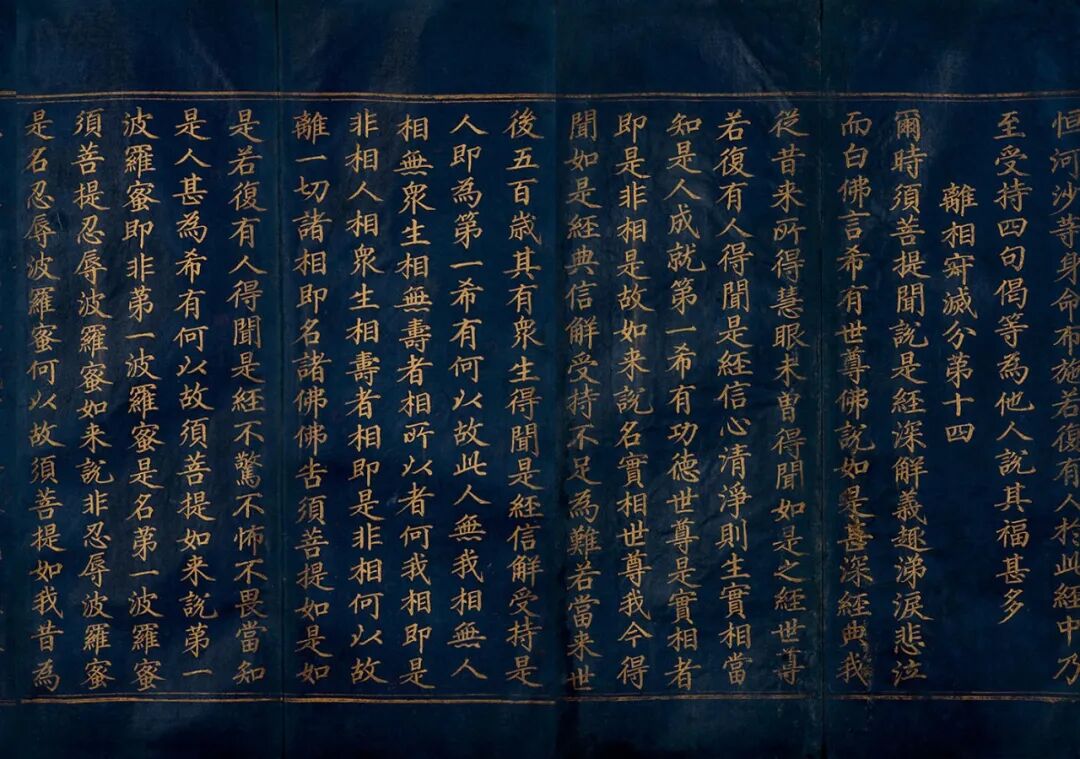 恒河沙等身命布施若復有人於此經中乃
至受持四句偈等為他人說其福甚多
離相寂滅分第十四
爾時須菩提聞說是經深解義趣涕淚悲泣
而白佛言希有世尊佛說如是甚深經典我
從昔来所得慧眼未曾得聞如是之經世尊
若復有人得聞是經信心清淨則生實相當
知是人成就第一希有功德世尊是實相者
即是非相是故如来說名實相世尊我今得
聞如是經典信解受持不足為難若當来世
後五百歲其有眾生得聞是經信解受持是
人即為第一希有何以故此人無我相無人
相無眾生相無壽者相所以者何我相即是
非相人相眾生相壽者相即是非相何以故
離一切諸相即名諸佛佛告須菩提如是如
是若復有人得聞是經不驚不怖不畏當知
是人甚為希有何以故須菩提如来說第一
波羅蜜即非第一波羅蜜是名第一波羅蜜
須菩提忍辱波羅蜜如来說非忍辱波羅蜜
是名忍辱波羅蜜何以故須菩提如我昔為